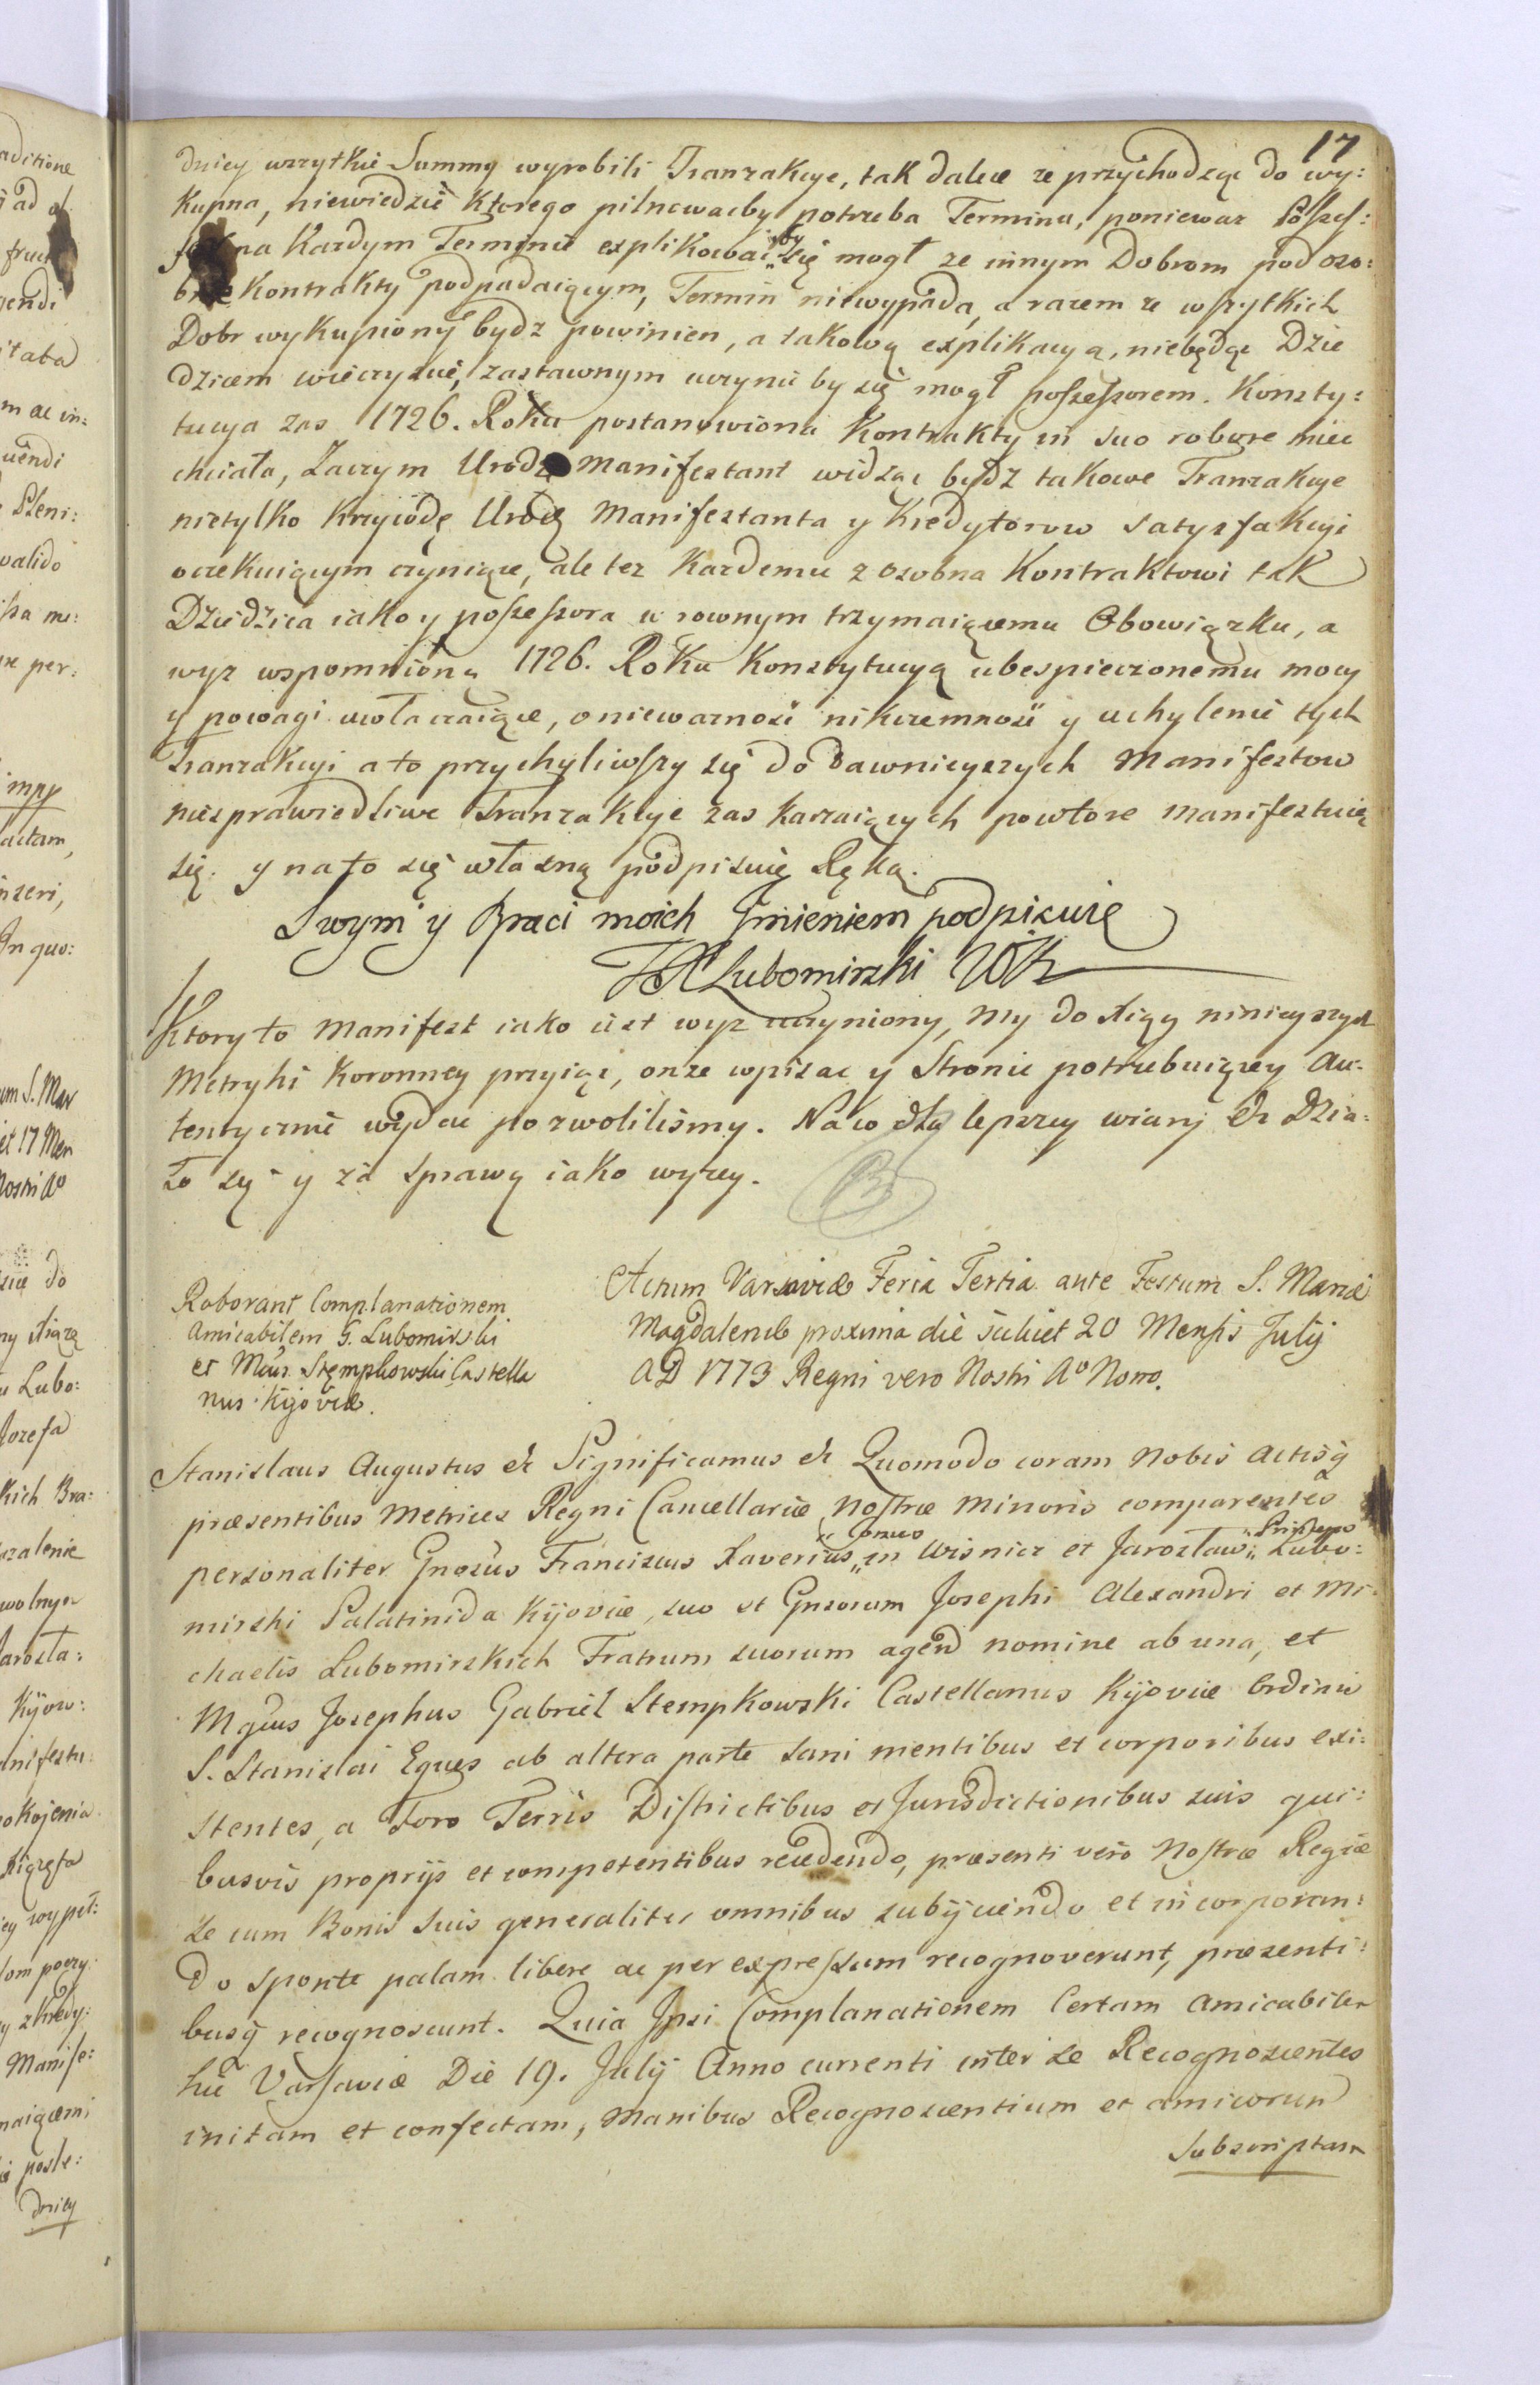 17
dniey wszytkie Summy wyrobili Tranzakcye, tak dalece ze przychodząc do wy:
kupna, niewiedzić ktorego pilnowacby potrzeba Terminu, poniewaz Possess:
na Kazdym Terminie explikowac by się mogł ze innym Dobrom pod oso:
Kontrakty podpadaiącym, Termin niewypada, a razem ze wszytkich
Dobr wykupiony bydz powinien, a takową explikacyą, niebędąc Dzie
dzicem wieczyscie, zastawnym uczynić by się mogł possessorem. Konsty:
tucya zas 1726. Roku postanowiona Kontrakty in suo robore miec
chciała, Zaczym Urodz Manifestant widząc bydz takowe Tranzakcye
nietylko Krzywdę Urodz Manifestanta y Kredytorow satysfakcyi
oczekuiącym czyniące, ale tez kazdemu z osobna Kontraktowi tak
Dziedzica iako y possessora w rownym trzymaiącemu Obowiązku, a
wyz wspomnioną 1726. Roku Konstytucyą ubespieczonemu mocy
y powagi uwłaczaiące, o niewaznosc nikczemnosc y uchylenie tych
Tranzakcyi a to przychyliwszy się do dawnieyszych Manifestow
niesprawiedliwe Tranzakcye zaskarzaiących powtore manifestuią
się. y na to się własną podpisuię Ręką.
Swym y Braci moich Imieniem podpisuię
FX Lubomirski WK
Ktory to Manifest iako iest wyz uczyniony, My do Xiąg ninieyszych
Metryki Koronney przyiąc, onze wpisac y Stronie potrzebuiącey Au:
tentycznie wydac pozwolilismy. Na co dla lepszey wiary &c Dzia:
ło się y za sprawą iako wyzey.
Roborant Complanationem
Amicabilem G. Lubomirski
et Mcus. Stępkowski Castella
nus Kijoviæ.
Actum Varsaviæ Feria Tertia ante Festum S. Mariæ
Magdalenæ proxima die scilicet 20 Mensis Julij
AD 1773 Regni vero Nostri Aº Nono.
Stanislaus Augustus &c Significamus &c Quomodo coram Nobis Actisq
præsentibus Metrices Regni Cancellariæ Nostræ Minoris comparentes
personaliter Gnosus Franciscus Xaverius in Wisnicz et Jarosław Lubo:
mirski Palatinida Kijoviæ, suo et Gnsorum Josephi Alexandri et Mi:
chaelis Lubomirskich Fratrum suorum agend nomine ab una, et
Mgcus Josephus Gabriel Stempkowski Castellanus Kijoviæ Ordinis
S. Stanislai Eques ab altera parte sani mentibus et corporibus exi:
stentes, a Foro Terris Districtibus et Jurisdictionibus suis qui:
busvis proprijs et competentibus recedendo, præsenti vero Nostræ Regiæ
se cum Bonis suis generaliter omnibus subijciendo et incorporan:
do sponte palam libere ac per expressum recognoverunt, præsenti:
busq recognoscunt. Quia Ipsi Complanationem Certam Amicabilem
hic Varsaviæ Die 19. Julij Anno currenti inter se Recognoscentes
initam et confectam, Manibus Recognoscentium et amicorum
subscriptam